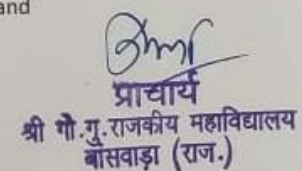 and
प्राचार्य
श्री गो.गु.राजकीय महाविद्यालय
बांसवाड़ा (राज.)